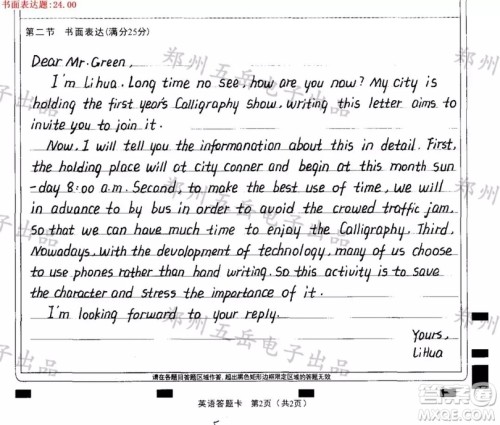 书面表达题:24.00
第二节 书面表达(满分25分)
Dear Mr. Green,
I'm Li hua. Long time no see, how are you now? My city is
holding the first year's Calligraphy show, writing this letter aims to
invite you to join it.
Now, I will tell you the informanation about this in detail. First,
the holding place will at city conner and begin at this month sun
-day 8:00 a.m. Second, to make the best use of time, we will
in advance to by bus in order to avoid the crowed traffic jam,
so that we can have much time to enjoy the Calligraphy. Third,
Nowadays, with the devolopment of technology, many of us choose
to use phones rather than hand writing. So this activity is to save
the character and stress the importance of it.
I'm looking forward to your reply.
Yours,
LiHua
请在各题目答题区域作答,超出黑色矩形边框限定区域的答案无效
英语答题卡 第2页(共2页)
郑州五岳电子出品